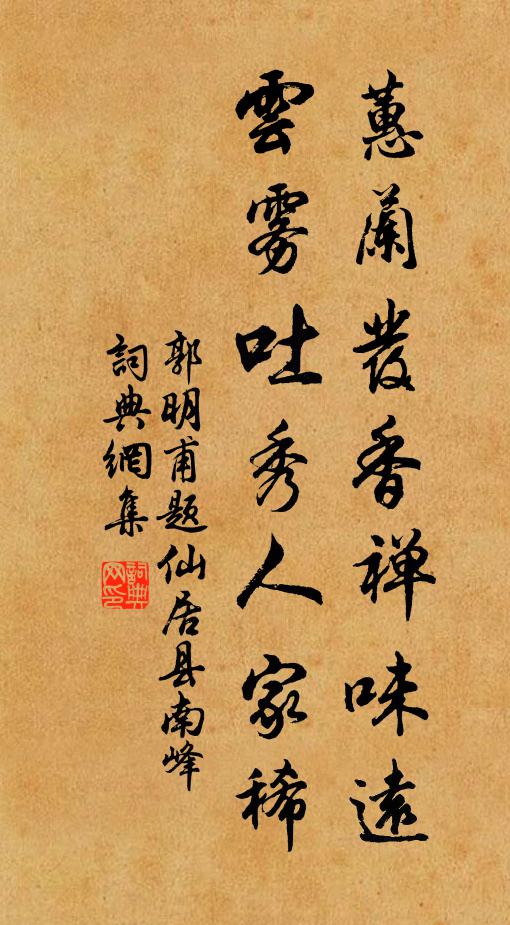 蕙蘭發香禅味遠
雲雾吐秀人家稀
郭明甫題仙居县南峰
詞典網集
詞典网印